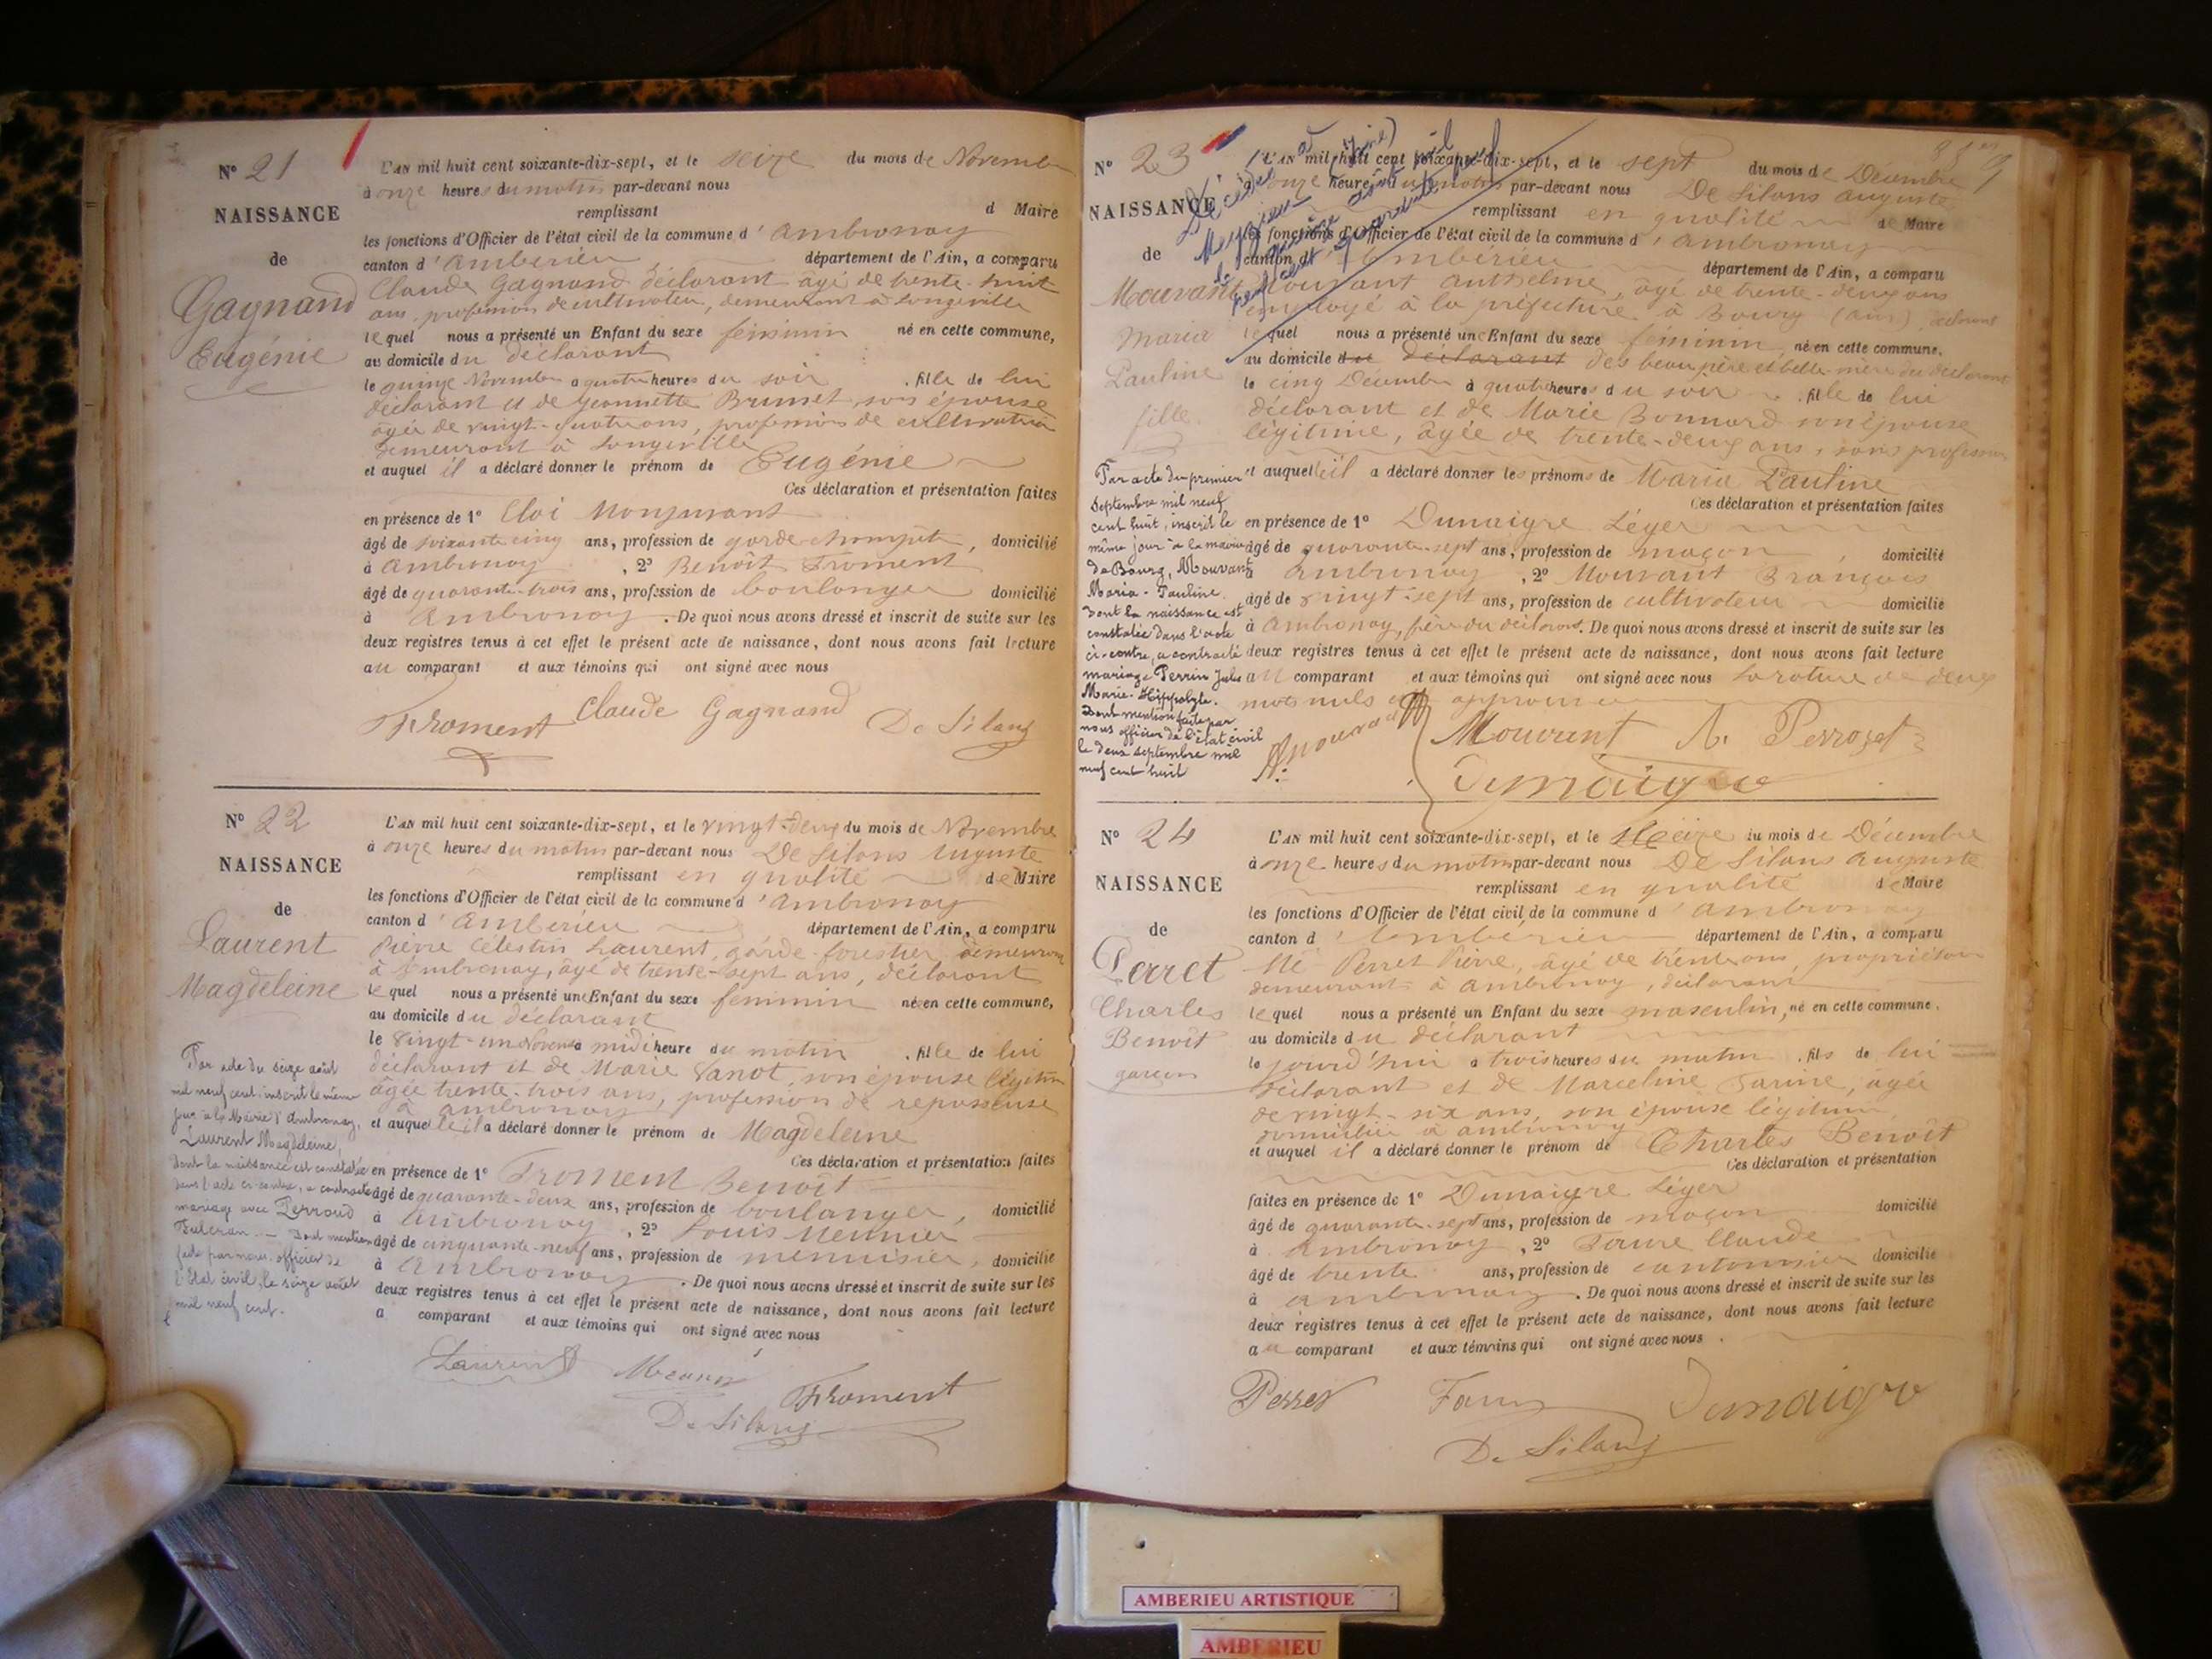 N° 21
NAISSANCE
de
Gagnand
Eugénie
L'AN mil huit cent soixante-dix-sept, et le seize du mois de Novembre
à onze heures du matin par-devant nous
remplissant d Maire
les fonctions d'Officier de l'état civil de la commune d'Ambronay
canton d'Ambérieu département de l'Ain, a comparu
Claude Gagnand déclarant âgé de trente-huit
ans, profession de cultivateur, demeurant à Longeville
lequel nous a présenté un Enfant du sexe féminin né en cette commune,
au domicile du déclarant
le quinze Novembre à quatre heures du soir, fille de lui
déclarant et de Jeannette Brunet, son épouse
âgée de vingt-quatre ans, profession de cultivatrice
demeurant à Longeville
et auquel il a déclaré donner le prénom de Eugénie
Ces déclaration et présentation faites
en présence de 1° Eloi Monjurant
âgé de soixante cinq ans, profession de garde-champêtre, domicilié
à Ambronay, 2° Benoît Froment
âgé de quarante-trois ans, profession de boulanger domicilié
à Ambronay. De quoi nous avons dressé et inscrit de suite sur les
deux registres tenus à cet effet le présent acte de naissance, dont nous avons fait lecture
au comparant et aux témoins qui ont signé avec nous
Froment Claude Gagnand De Silans
N° 22
NAISSANCE
de
Laurent
Magdeleine
Par acte du seize août
mil neuf cent, inscrit le même
jour à la Mairie d'Ambronay,
Laurent Magdeleine,
dont la naissance est constatée
dans l'acte ci-contre, a contracté
mariage avec Perroud
Fulcran. — Dont mention
faite par nous, officier de
l'état civil, le seize août
mil neuf cent.
L'AN mil huit cent soixante-dix-sept, et le vingt-deux du mois de Novembre
à onze heures du matin par-devant nous De Silans Auguste
remplissant en qualité de Maire
les fonctions d'Officier de l'état civil de la commune d'Ambronay
canton d'Ambérieu département de l'Ain, a comparu
Pierre Célestin Laurent, garde-forestier, demeurant
à Ambronay, âgé de trente-sept ans, déclarant
lequel nous a présenté un Enfant du sexe féminin né en cette commune,
au domicile du déclarant
le vingt-un Novembre à midi heure du matin, fille de lui
déclarant et de Marie Vanot, son épouse légitime
âgée trente-trois ans, profession de repasseuse
à Ambronay
et auquel il a déclaré donner le prénom de Magdeleine
Ces déclaration et présentation faites
en présence de 1° Froment Benoît
âgé de quarante-deux ans, profession de boulanger, domicilié
à Ambronay, 2° Louis Meunier
âgé de cinquante-neuf ans, profession de menuisier, domicilié
à Ambronay. De quoi nous avons dressé et inscrit de suite sur les
deux registres tenus à cet effet le présent acte de naissance, dont nous avons fait lecture
a comparant et aux témoins qui ont signé avec nous
Laurent Meunier Froment
De Silans
N° 23
NAISSANCE
de
Mouvant
Maria
Pauline
fille
Par acte du premier
Septembre mil neuf
cent huit, inscrit le
même jour à la mairie
de Bourg, Mouvant
Maria-Pauline
dont la naissance est
constatée dans l'acte
ci-contre, a contracté
mariage Perrin Jules
Marie-Hippolyte.
Dont mention faite par
nous officier de l'état civil
le deux septembre mil
neuf cent huit
Décédée à
Meximieux (Ain)
le avril
neuf cent quarante neuf
L'AN mil huit cent soixante-dix-sept, et le sept du mois de Décembre
à onze heures du matin par-devant nous De Silans Auguste
remplissant en qualité de Maire
les fonctions d'Officier de l'état civil de la commune d'Ambronay
canton d'Ambérieu département de l'Ain, a comparu
Mouvant Anthelme, âgé de trente-deux ans
employé à la préfecture à Bourg (Ain), déclarant
lequel nous a présenté un Enfant du sexe féminin, né en cette commune,
au domicile du déclarant des beau-père et belle-mère du déclarant
le cinq Décembre à quatre heures du soir, fille de lui
déclarant et de Marie Bonnard son épouse
légitime, âgée de trente-deux ans, sans profession
et auquel il a déclaré donner les prénoms de Maria Pauline
Ces déclaration et présentation faites
en présence de 1° Dunaigre Léger
âgé de quarante-sept ans, profession de maçon, domicilié
à Ambronay, 2° Mouvant François
âgé de vingt-sept ans, profession de cultivateur domicilié
à Ambronay, frère du déclarant. De quoi nous avons dressé et inscrit de suite sur les
deux registres tenus à cet effet le présent acte de naissance, dont nous avons fait lecture
au comparant et aux témoins qui ont signé avec nous la rature de deux
mots nuls approuvée
Mouvant A. Perrozet
Dunaigre
N° 24
NAISSANCE
de
Perret
Charles
Benoît
garçon
L'AN mil huit cent soixante-dix-sept, et le seize du mois de Décembre
à onze heures du matin par-devant nous De Silans Auguste
remplissant en qualité de Maire
les fonctions d'Officier de l'état civil de la commune d'Ambronay
canton d'Ambérieu département de l'Ain, a comparu
Perret Pierre, âgé de trente ans, propriétaire
demeurant à Ambronay, déclarant
lequel nous a présenté un Enfant du sexe masculin, né en cette commune.
au domicile du déclarant
le jourd'hui à trois heures du matin, fils de lui
déclarant et de Marceline Tarine, âgée
de vingt-six ans, son épouse légitime,
domiciliée à Ambronay
et auquel il a déclaré donner le prénom de Charles Benoît
Ces déclaration et présentation
faites en présence de 1° Dunaigre Léger
âgé de quarante-sept ans, profession de maçon domicilié
à Ambronay, 2° Faure Claude
âgé de trente ans, profession de cantonnier domicilié
à Ambronay. De quoi nous avons dressé et inscrit de suite sur les
deux registres tenus à cet effet le présent acte de naissance, dont nous avons fait lecture
au comparant et aux témoins qui ont signé avec nous.
Perret Faure Dunaigre
De Silans
AMBERIEU ARTISTIQUE
AMBERIEU